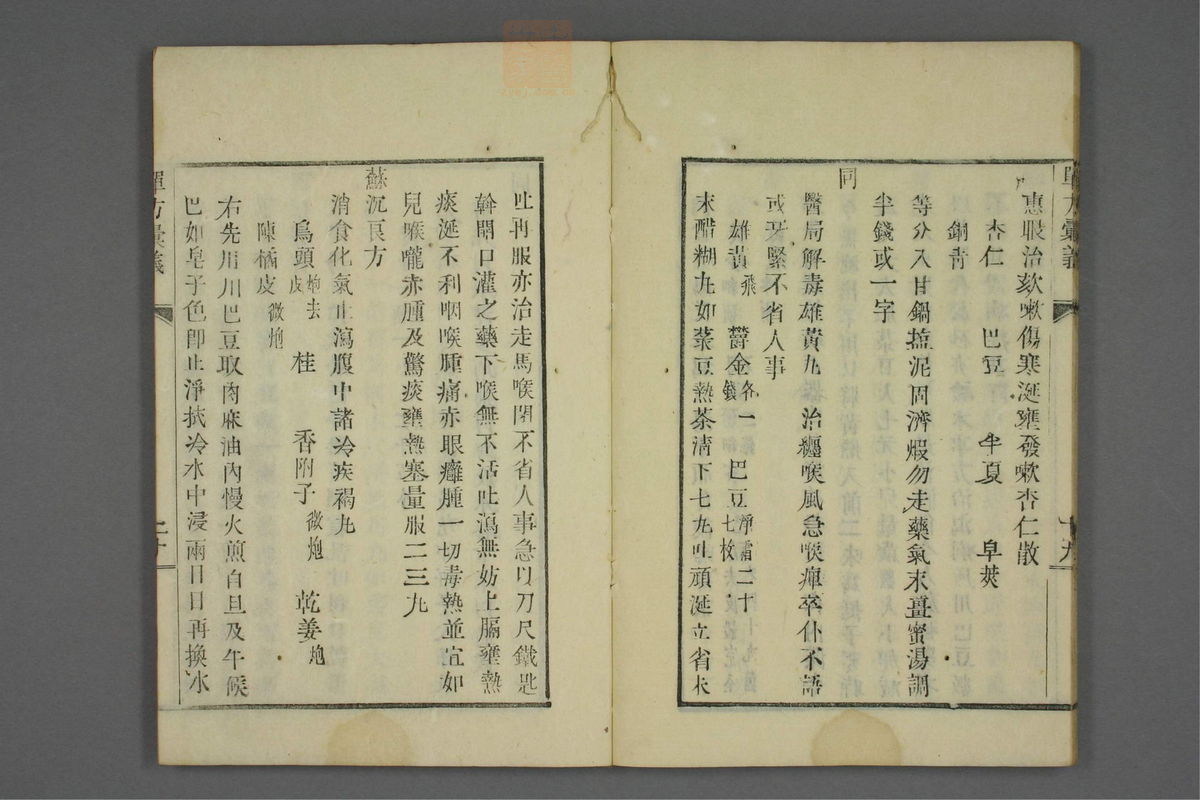 惠眼治欬嗽傷寒涎壅發嗽杏仁散
杏仁 巴豆 半夏 皁莢
銅青
等分入甘鍋揾泥固濟煅勿走藥氣末薑蜜湯調
半錢或一字
同
醫局解毒雄黄丸治纏喉風急喉痺卒仆不語
或牙緊不省人事
雄黄飛 欝金各一錢 巴豆淨霜二十七枚
末醋糊丸如菉豆熱茶清下七丸吐頑涎立省未
吐再服亦治走馬喉閉不省人事急以刀尺鐵匙
斡開口灌之藥下喉無不活吐瀉無妨上膈壅熱
痰涎不利咽喉腫痛赤眼癰腫一切毒熱並宜如
兒喉嚨赤腫及驚痰壅熱塞量服二三丸
蘇沉良方
消食化氣止瀉腹中諸冷疾褐丸
烏頭炮去皮 桂 香附子微炮 乾姜炮
陳橘皮微炮
右先用川巴豆取肉麻油内慢火煎自旦及午候
巴如皂子色即止淨拭冷水中浸兩日日再換水
單方彙義
十九
單方彙義
二十